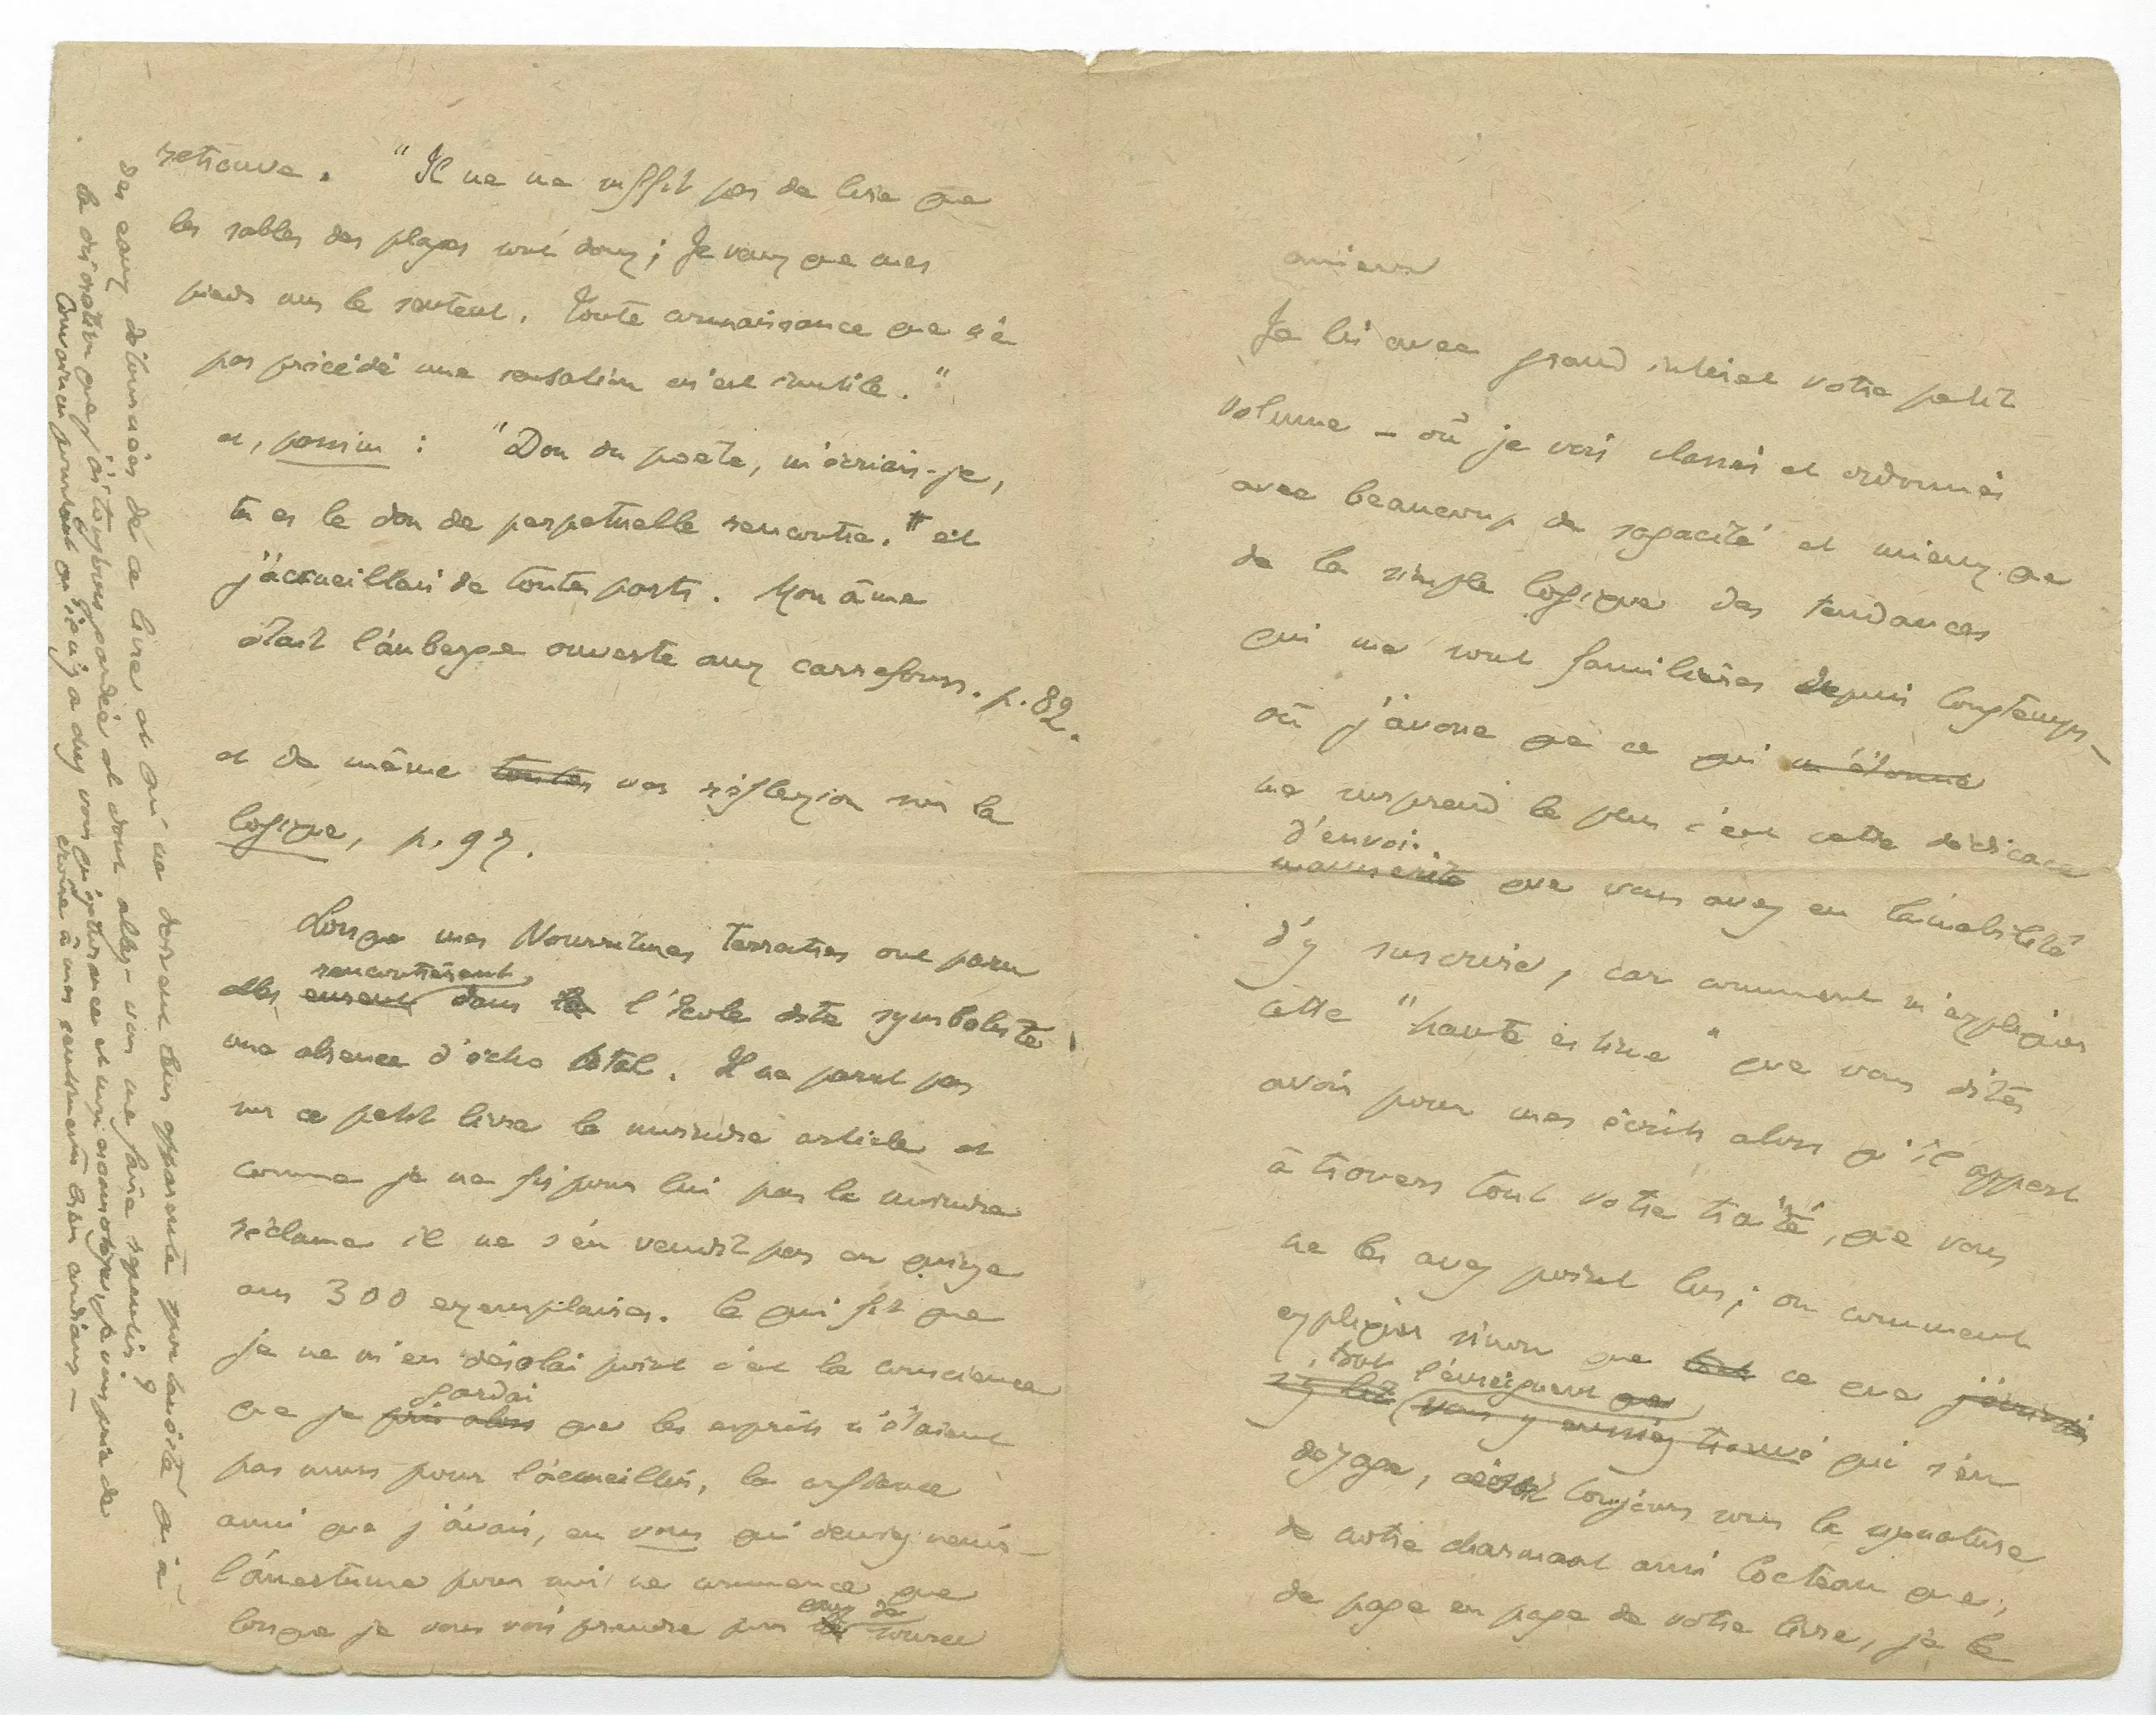 Monsieur
Je lis avec grand intérêt votre petit
volume – où je vois classés et ordonnés
avec beaucoup de sagacité et mieux que
de la simple logique des tendances
qui me sont familières depuis longtemps –
où j'avoue que ce qui m'étonne
me surprend le plus c'est cette dédicace
d'envoi
manuscrite que vous avez eu l'amabilité
d'y suscrire, car comment m'expliquer
cette "haute estime" que vous dites
avoir pour mes écrits alors qu'il appert
à travers tout votre traité, que vous
ne les avez point lus ; ou comment
expliquer sinon que tout ce que j'écrivais
, tout l'enseignement que
vous y eussiez trouvé qui s'en
dégage, toujours sous la signature
de notre charmant ami Cocteau que,
de page en page de votre livre, je le
retrouve. "Il ne me suffit pas de lire que
les sables des plages sont doux ; Je veux que mes
pieds nus le sentent. Toute connaissance que n'a
pas précédé une sensation m'est inutile."
et, passim : "Don du poète, m'écriais-je,
tu es le don de perpétuelle rencontre." et
j'accueillais de toutes parts. Mon âme
était l'auberge ouverte aux carrefours. p. 82.
et de même toutes vos réflexion sur la
logique, p. 97.
Lorsque mes Nourritures Terrestres ont paru
rencontrèrent
elles eurent dans la l'école dite symboliste
une absence d'écho total. Il ne parut pas
sur ce petit livre le moindre article et
comme je ne fis pour lui pas la moindre
réclame il ne s'en vendit pas en quinze
ans 300 exemplaires. Ce qui fit que
je ne m'en désolai point c'est la conscience
gardai
que je pris alors que les esprits n'étaient
pas murs pour l'accueillir, la confiance
aussi que j'avais, en vous qui deviez venir –
l'amertume pour moi ne commence que
eaux de
lorsque je vous vois prendre pour la source
des eaux détournées de ce livre et qui ne doivent leur apparente nouveauté qu'à
la discrétion que j'ai toujours gardée et dont allez-vous me faire repentir ?
Convaincu pourtant qu'il n'y a chez vous qu'ignorance et non malice, je vous prie de
croire à mes sentiments bien cordiaux –